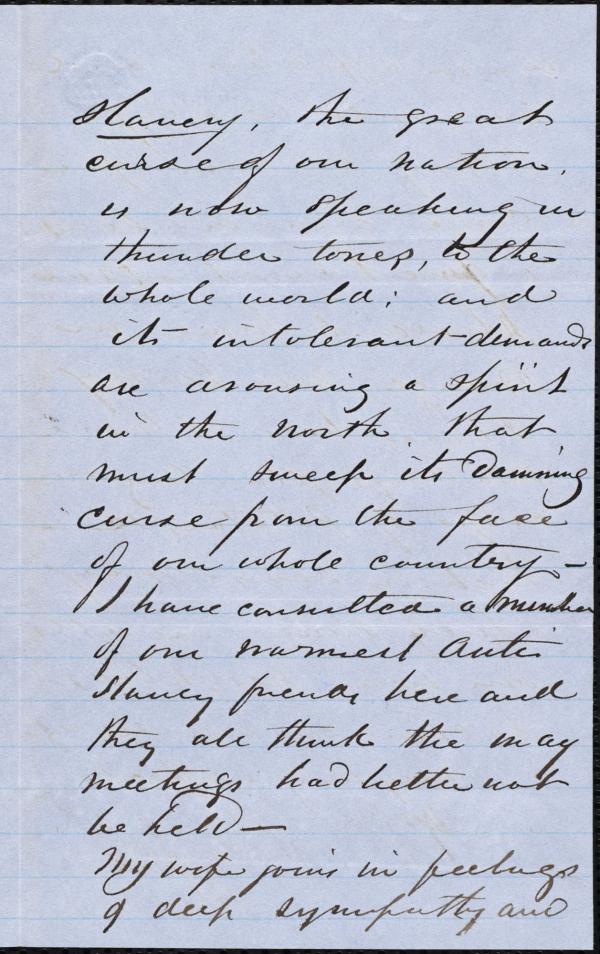 Slavery, the great
curse of our nation,
is now speaking in
thunder tones, to the
whole world; and
its intolerant demands
are arousing a spirit
in the north that
must sweep its damning
curse from the face
of our whole country –
I have consulted a number
of our warmest Anti
Slavery friends here and
they all think the may
meetings had better not
be held —
My wife joins in feelings
of deep sympathy and